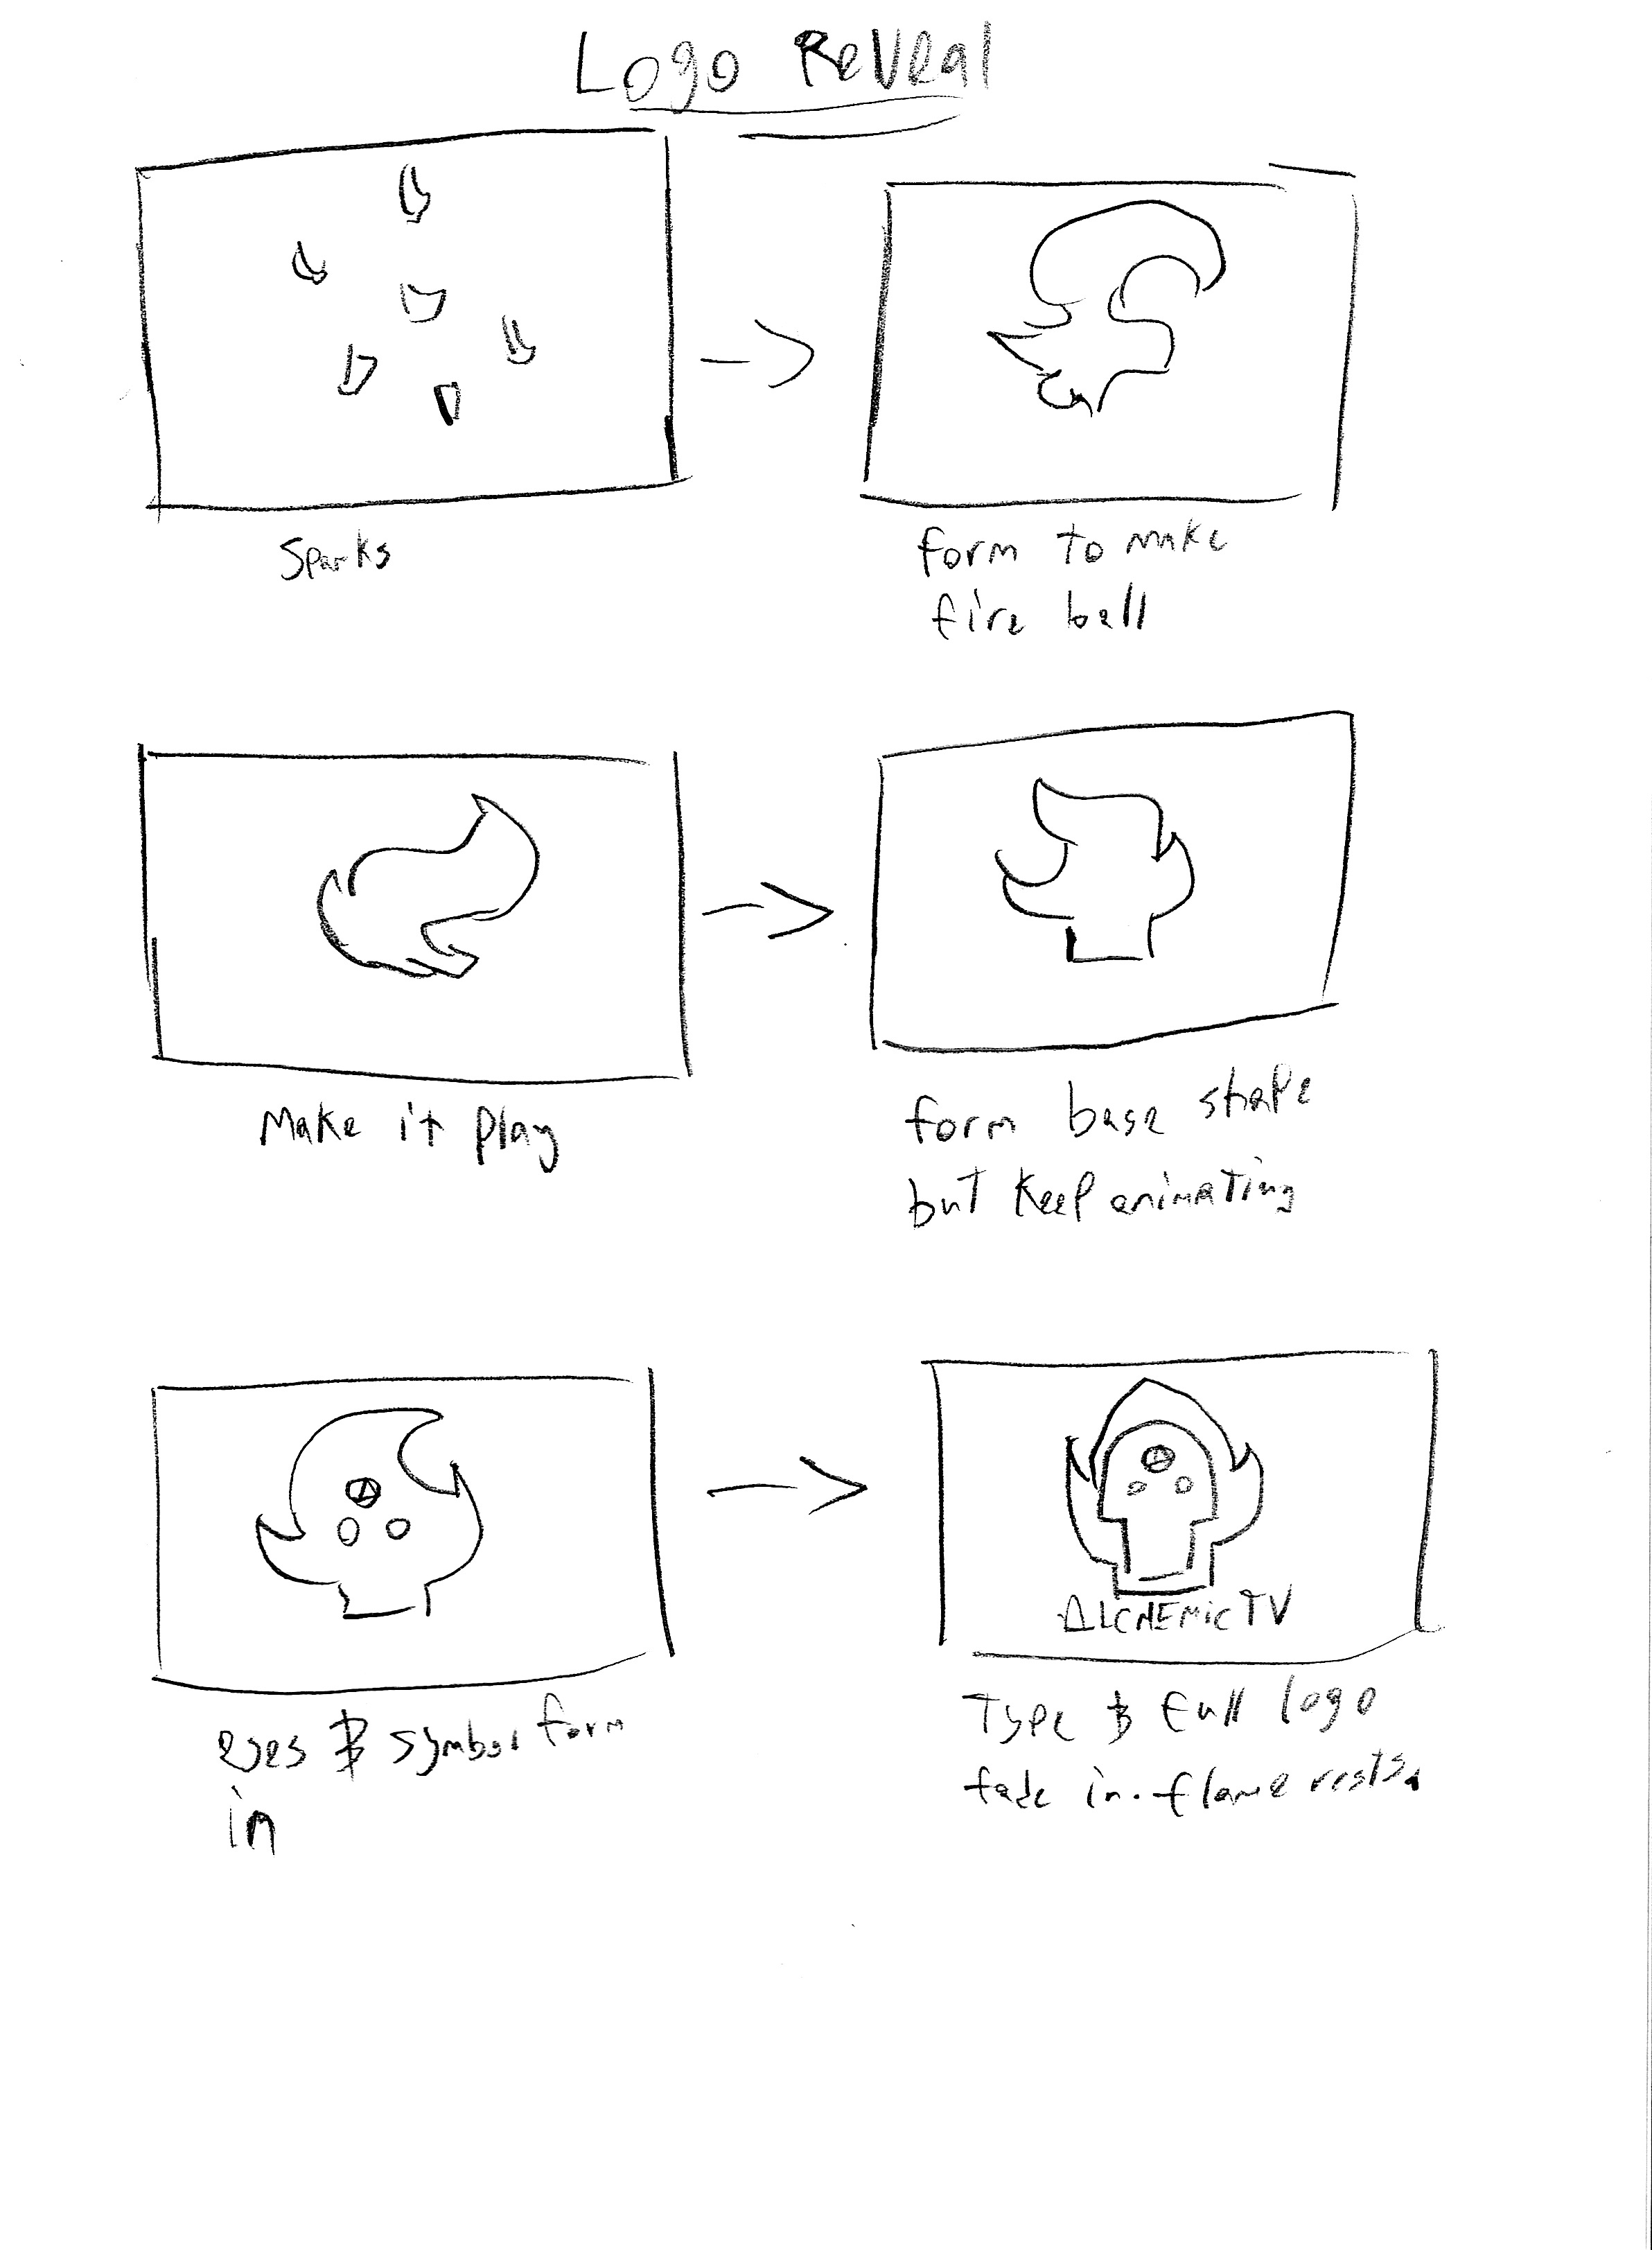 Logo Reveal
Sparks
form to make
fire ball
Make it play
form base shape
but keep animating
eyes & symbol form
in
ALCHEMIC TV
Type & full logo
fade in. flame rests.